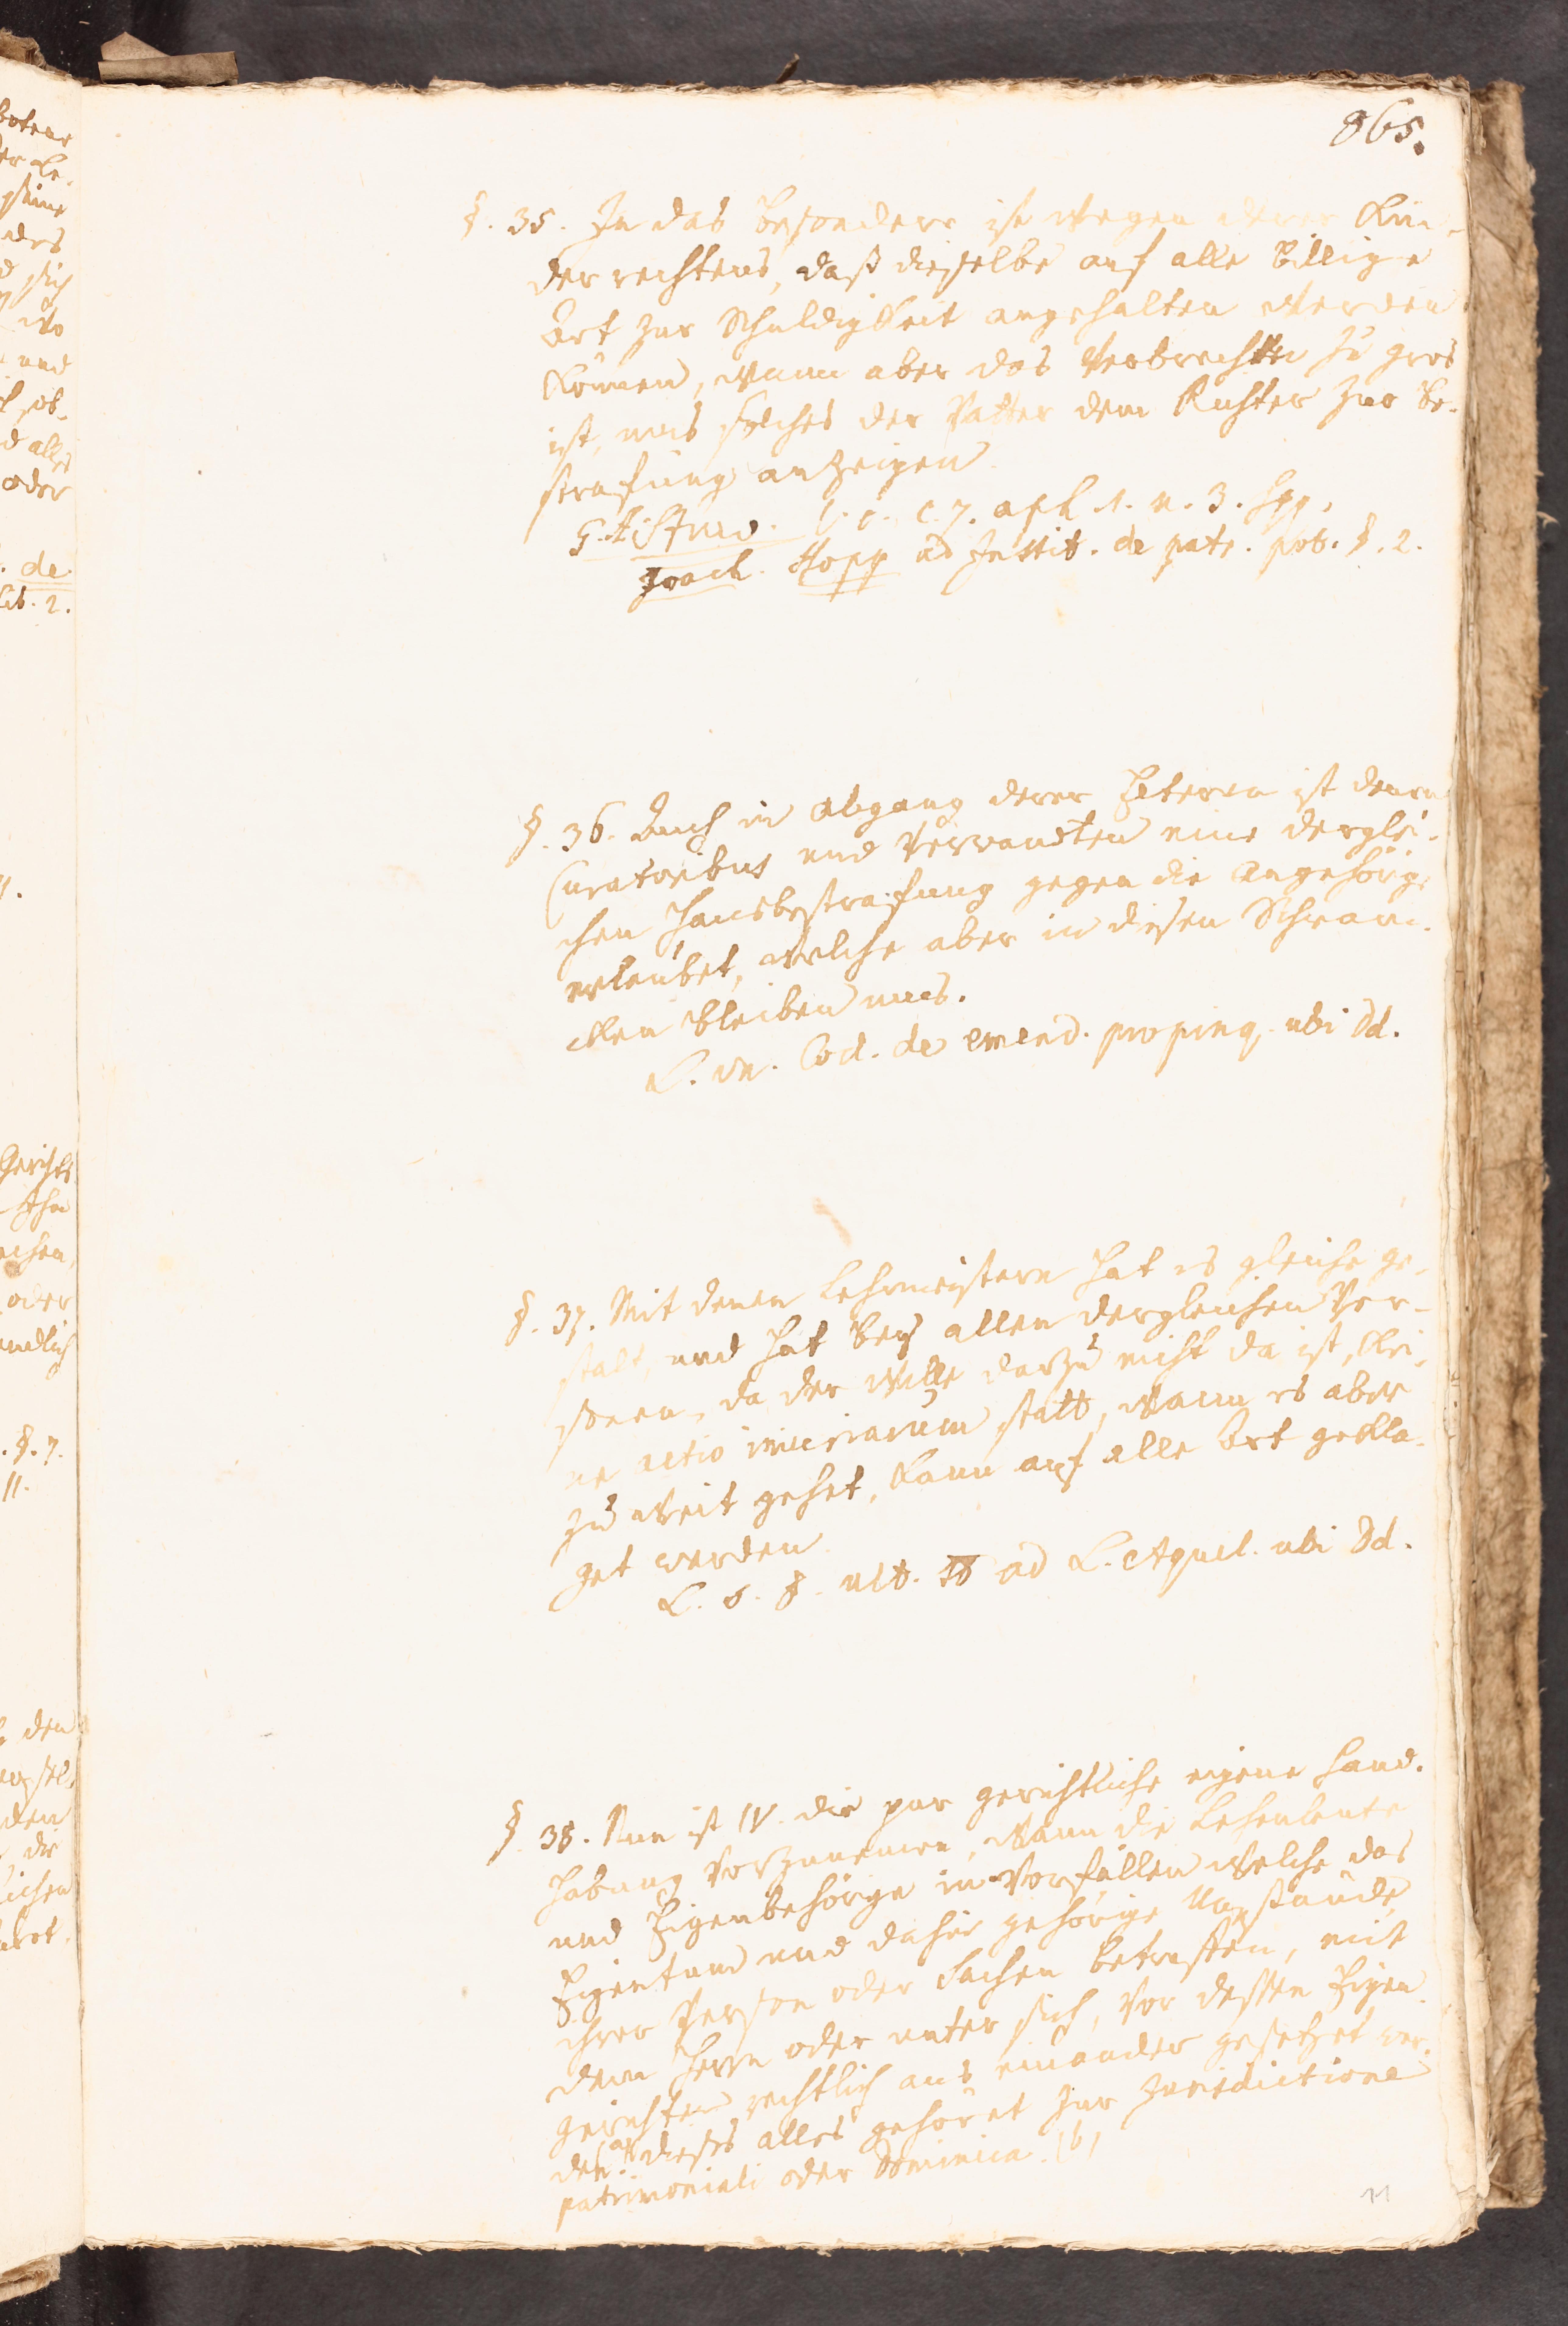 865.
§. 35. In das besondere ist wegen derer Kin-
der rechtens, daß dieselbe auf alle billige
Art zur Schuldigkeit angehalten werden
können, wann aber das Verbrechen zu gros
ist, mus solches der Vatter dem Richter zur be-
strafung anzeigen
G. A. Struv. l. c. c. 7. aph. 1. n. 3. sqq.
Joach. Hopp ad Instit. de patr. pot. §. 2.
§. 36. Auch in Abgang derer Elteren ist denen
Curatoribus und Verwandten eine derglei-
chen Hausbestrafung gegen die Angehörige
erlaubet, welche aber in diesen Schran-
cken bleiben mus.
L. un. Cod. de emend. propinq. ubi Dd.
§. 37. Mit denen Lehrmeistern hat es gleiche ge-
stalt, und hat bey allen dergleichen Per-
sonen, da der Wille darzu nicht da ist, kei-
ne actio iniuriarum statt, wann es aber
zu weit gehet, kann auf alle Art gekla-
get werden
L. 5. §. ult. ff ad L. Aquil. ubi Dd.
§. 38. Nun ist IV. die pur gerichtliche eigene Hand-
habung vorzunemen, wann die Lehenleute
und Eigenbehörige in Vorfällen welche das
Eigentum und dahin gehörige Umstände,
ihrer Person oder Sachen betreffen, mit
dem Herrn oder unter sich, vor dessen Eigen-
gerichten rechtlich aus einander gesetzet wer-
den. (a) dieses alles gehöret zur Jurisdictione
patrimoniali oder Dominica. (b)